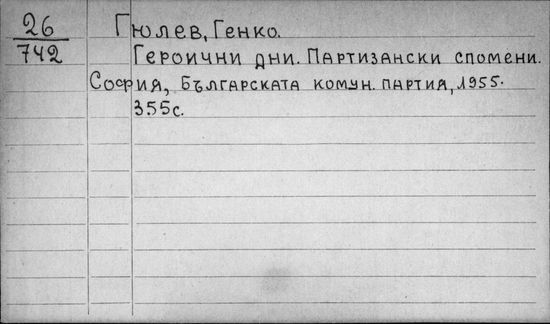 26 Гюлев, Генко.
742 Героични дни. Партизански спомени.
София, Българската комун. партия, 1955.
355с.